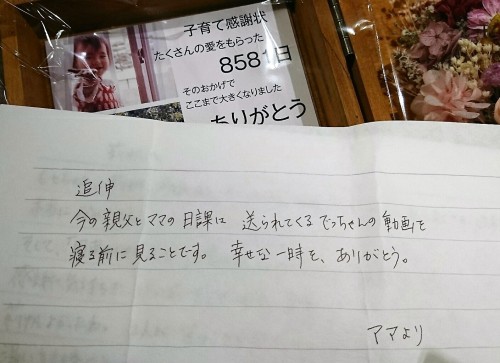 子育て感謝状
たくさんの愛をもらった
8581日
そのおかげで
ここまで大きくなりました
ありがとう
追伸
今の親父とママの日課は 送られてくるでっちゃんの動画を
寝る前に見ることです。 幸せな一時を、ありがとう。
アマより